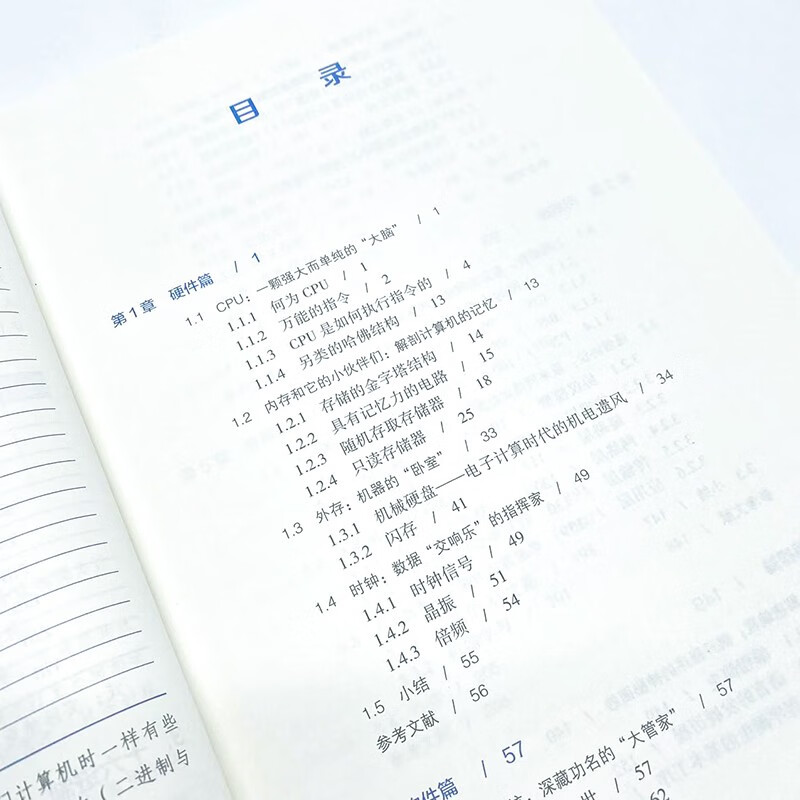 目 录
第1章 硬件篇 / 1
1.1 CPU：一颗强大而单纯的“大脑” / 1
1.1.1 何为CPU / 1
1.1.2 万能的指令 / 2
1.1.3 CPU是如何执行指令的 / 4
1.1.4 另类的哈佛结构 / 13
1.2 内存和它的小伙伴们：解剖计算机的记忆 / 13
1.2.1 存储的金字塔结构 / 14
1.2.2 具有记忆力的电路 / 15
1.2.3 随机存取存储器 / 18
1.2.4 只读存储器 / 25
1.3 外存：机器的“卧室” / 33
1.3.1 机械硬盘——电子计算时代的机电遗风 / 34
1.3.2 闪存 / 41
1.4 时钟：数据“交响乐”的指挥家 / 49
1.4.1 时钟信号 / 49
1.4.2 晶振 / 51
1.4.3 倍频 / 54
1.5 小结 / 55
参考文献 / 56
件篇 / 57
深藏功名的“大管家” / 57
/ 57
62
计算机时一样有些
（二进制与